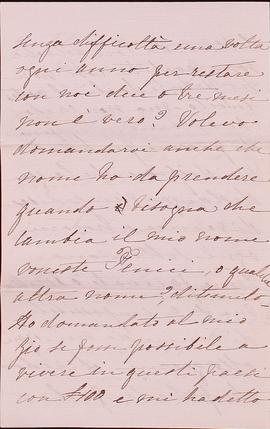 senza difficoltà una volta
ogni anno per restare
con noi due o tre mesi
non è vero? Volevo
domandarvi anche che
nome ho da prendere
quando bisogna che
cambia il mio nome
voreste Fenici, o qualche
altra nome?, ditemelo
Ho domandato al mio
Zio se fosse possibile a
vivere in questi paesi
con £400 e mi ha detto